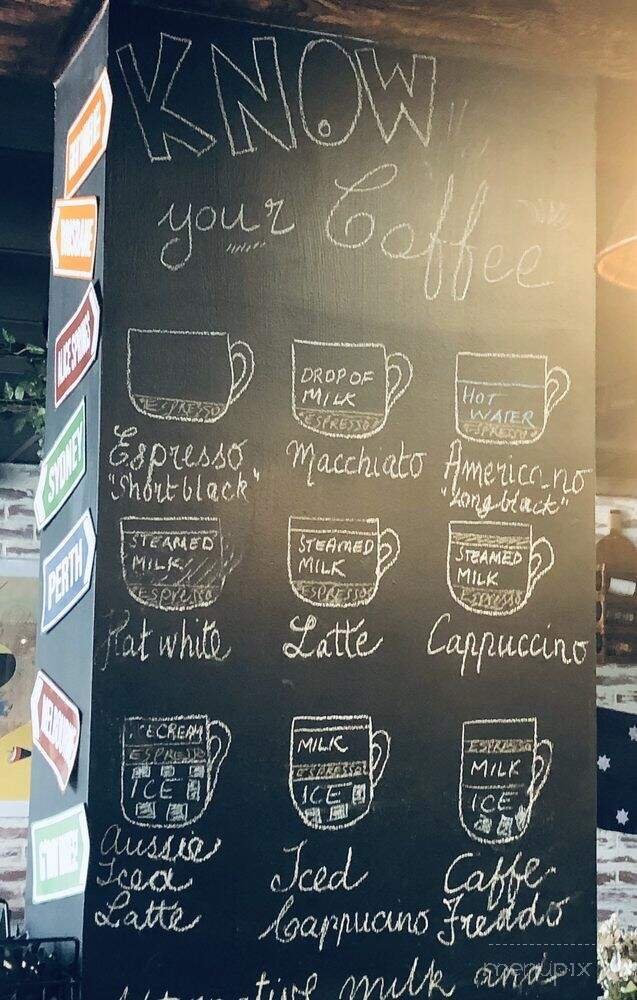 KNOW
your Coffee
ESPRESSO
Espresso
"Short black"
DROP OF
MILK
ESPRESSO
Macchiato
HOT
WATER
ESPRESSO
Americano
"Long black"
STEAMED
MILK
ESPRESSO
Flat white
STEAMED
MILK
ESPRESSO
Latte
STEAMED
MILK
ESPRESSO
Cappuccino
ICECREAM
ESPRESSO
ICE
Aussie
Iced
Latte
MILK
ESPRESSO
ICE
Iced
Cappucino
ESPRESSO
MILK
ICE
Caffe
Freddo
milk and
BRISBANE
ALICE SPRINGS
SYDNEY
PERTH
MELBOURNE
menupix